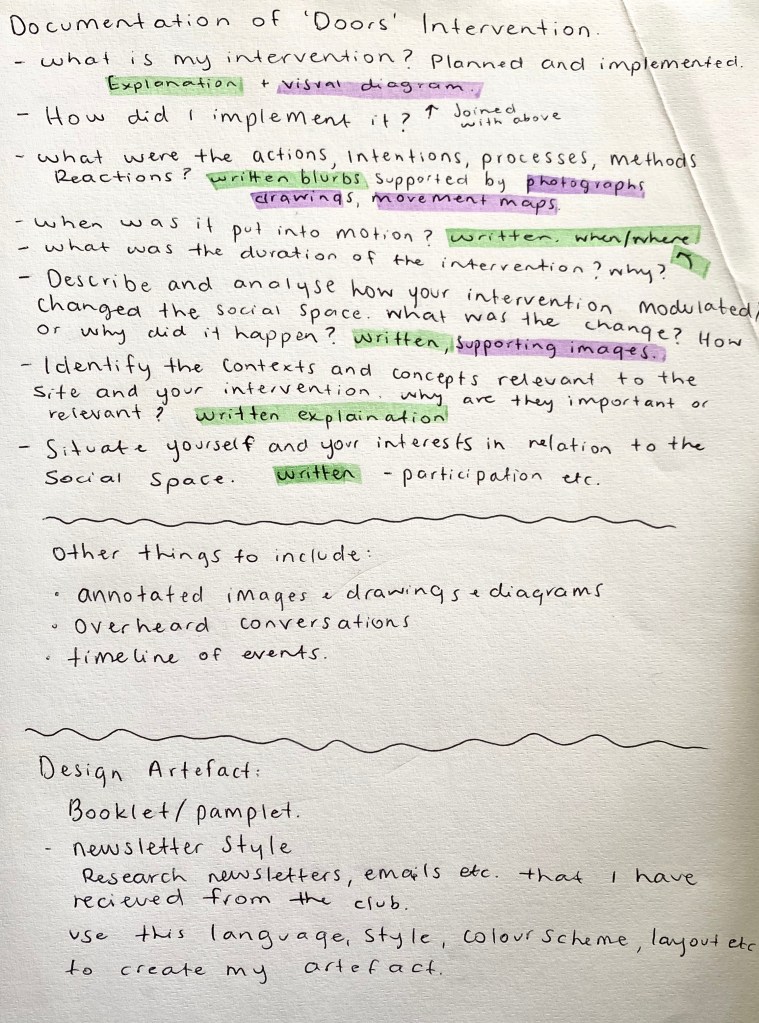 Documentation of 'Doors' Intervention.
- what is my intervention? Planned and implemented.
Explanation + visual diagram.
- How did I implement it? ↑ Joined
with above
- what were the actions, Intentions, processes, methods
Reactions? written blurbs supported by photographs
drawings, movement maps.
- when was it put into motion? written. when/where
- what was the duration of the intervention? why?
- Describe and analyse how your intervention modulated/
changed the social space. what was the change? How
or why did it happen? written, supporting images.
- Identify the contexts and concepts relevant to the
site and your intervention. why are they important or
relevant? written explaination
- Situate yourself and your interests in relation to the
Social Space. written - participation etc.
Other things to include:
• annotated images & drawings & diagrams
• Overheard conversations
• timeline of events.
Design Artefact:
Booklet/pamplet.
- newsletter Style
Research newsletters, emails etc. that I have
recieved from the club.
use this language, style, colour scheme, layout etc
to create my artefact.